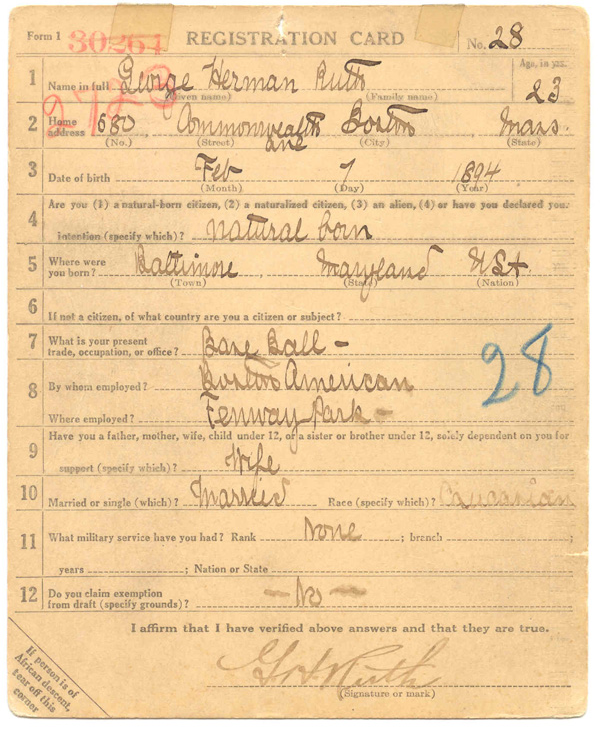 Form 1 30264 REGISTRATION CARD No. 28
1 Name in full George Herman Ruth Age, in yrs. 23
(Given name) (Family name)
2723
2 Home address 680 Commonwealth ave Boston Mass.
(No.) (Street) (City) (State)
3 Date of birth Feb 7 1894
(Month) (Day) (Year)
4 Are you (1) a natural-born citizen, (2) a naturalized citizen, (3) an alien, (4) or have you declared your
intention (specify which)? natural born
5 Where were you born? Baltimore, Maryland USA
(Town) (State) (Nation)
6 If not a citizen, of what country are you a citizen or subject?
7 What is your present trade, occupation, or office? Base Ball -
8 By whom employed? Boston American
Where employed? Fenway Park -
28
9 Have you a father, mother, wife, child under 12, or a sister or brother under 12, solely dependent on you for
support (specify which)? Wife
10 Married or single (which)? Married Race (specify which)? Caucasian
11 What military service have you had? Rank None ; branch ;
years ; Nation or State
12 Do you claim exemption from draft (specify grounds)? - No -
I affirm that I have verified above answers and that they are true.
G H Ruth
(Signature or mark)
If person is of
African descent,
tear off this
corner